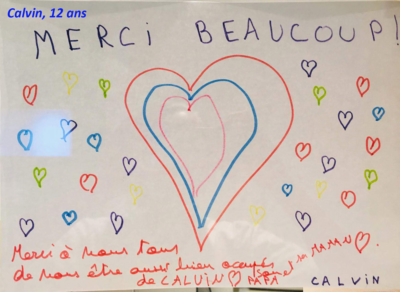 Calvin, 12 ans
MERCI BEAUCOUP!
Merci à vous tous
de vous être aussi bien occupés
de CALVIN son PAPA et sa MAMAN.
CALVIN